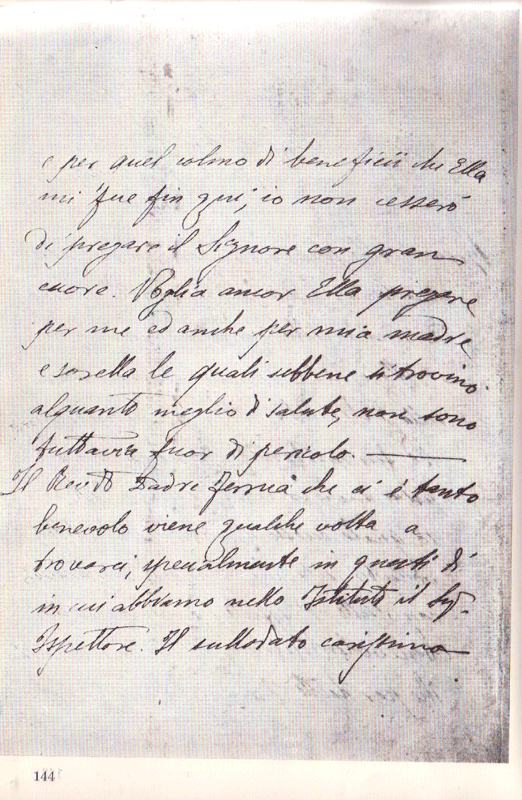 e per quel colmo di beneficii che Ella
mi fue fin qui, io non cesserò
di pregare il Signore con gran
cuore. Voglia ancor Ella pregare
per me ed anche per mia madre
e sorella le quali sebbene si trovino
alquanto meglio di salute, non sono
tuttavia fuor di pericolo. ———
Il Revdo Padre Ferrua che ci è tanto
benevolo viene qualche volta a
trovarci, specialmente in questi dì
in cui abbiamo nello Istituto il Sigr.
Ispettore. Il sullodato carissimo
144